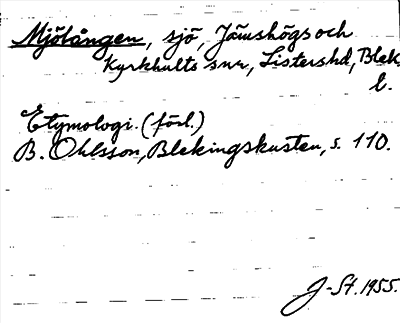 Mjölången, sjö, Jämshögs och
Kyrkhults snr, Listershd, Blek.
l.
Etymologi. (förl.)
B. Ohlsson, Blekingskusten, s. 110.
J-St. 1955.